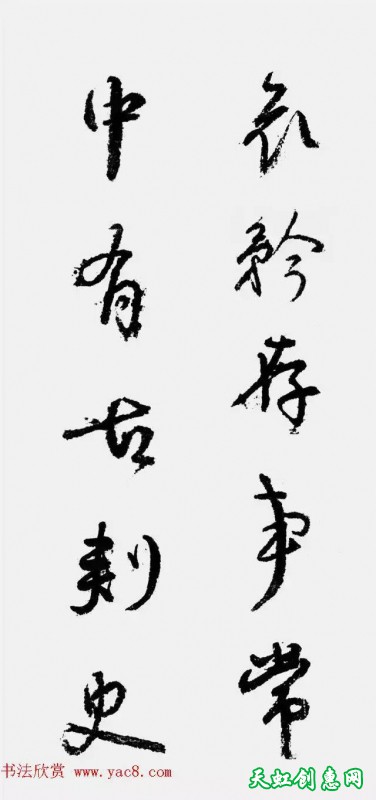 哀矜存事常
中有古刺史
书法欣赏 www.yac8.com
天虹创意网